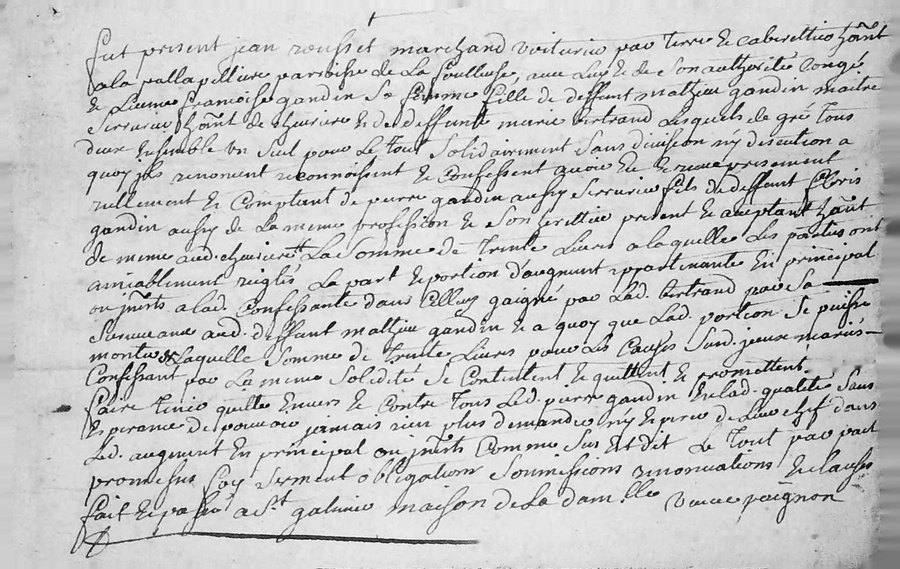 fut present jean rousset marchand voiturier par terre & cabarettier hânt
a la vallapilliere parroisse de La foulleuse, avec Luy & de son authorité Congé
& Licence francoise gandin sa femme fille de deffunt mathieu gandin maitre
serrurier hânt de & de deffunte marie bertrand Lesquels de gré Tous
deux Ensemble Un seul pour Le Tout solidairement sans division n'y discution a
quoy ils renoncent reconnoissent & Confessent avoir eu & receu presentement
reellement & Comptant de pierre gandin aussy serrurier fils de deffunt
gandin aussy de La meme profession & son heritier present & acceptant hânt
de meme aud. La somme de Trente Livres a laquelle Les parties ont
amiablement reiglés La part & portion d'augment appartenante En principal
ou jnrêts a lad. Confessante dans Celluy gaigné par Lad. bertrand par sa
survivance aud. deffunt mathieu gandin & a quoy que Lad. portion se puisse
monter & Laquelle somme de Trente Livres pour Les Causes susd. jceux mariés
Confessant par La meme solidité se Contentent & quittent & promettent
faire Tenir quitte Envers & Contre Tous Led. pierre gandin En lad. qualité sans
Esperance de pouvoir jamais rien plus demander n'y de Leur chef dans
Led. augment En principal ou jnrêts Comme sus Est dit Le Tout par pact
promesses foy serment obligations soumissions renonciations & clauses
fait & passé a St. galmier maison de La dam.lle veuve peignon